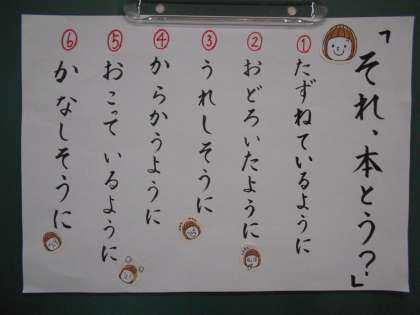 「それ、本とう？」
①たずねているように
②おどろいたように
③うれしそうに
④からかうように
⑤おこっているように
⑥かなしそうに